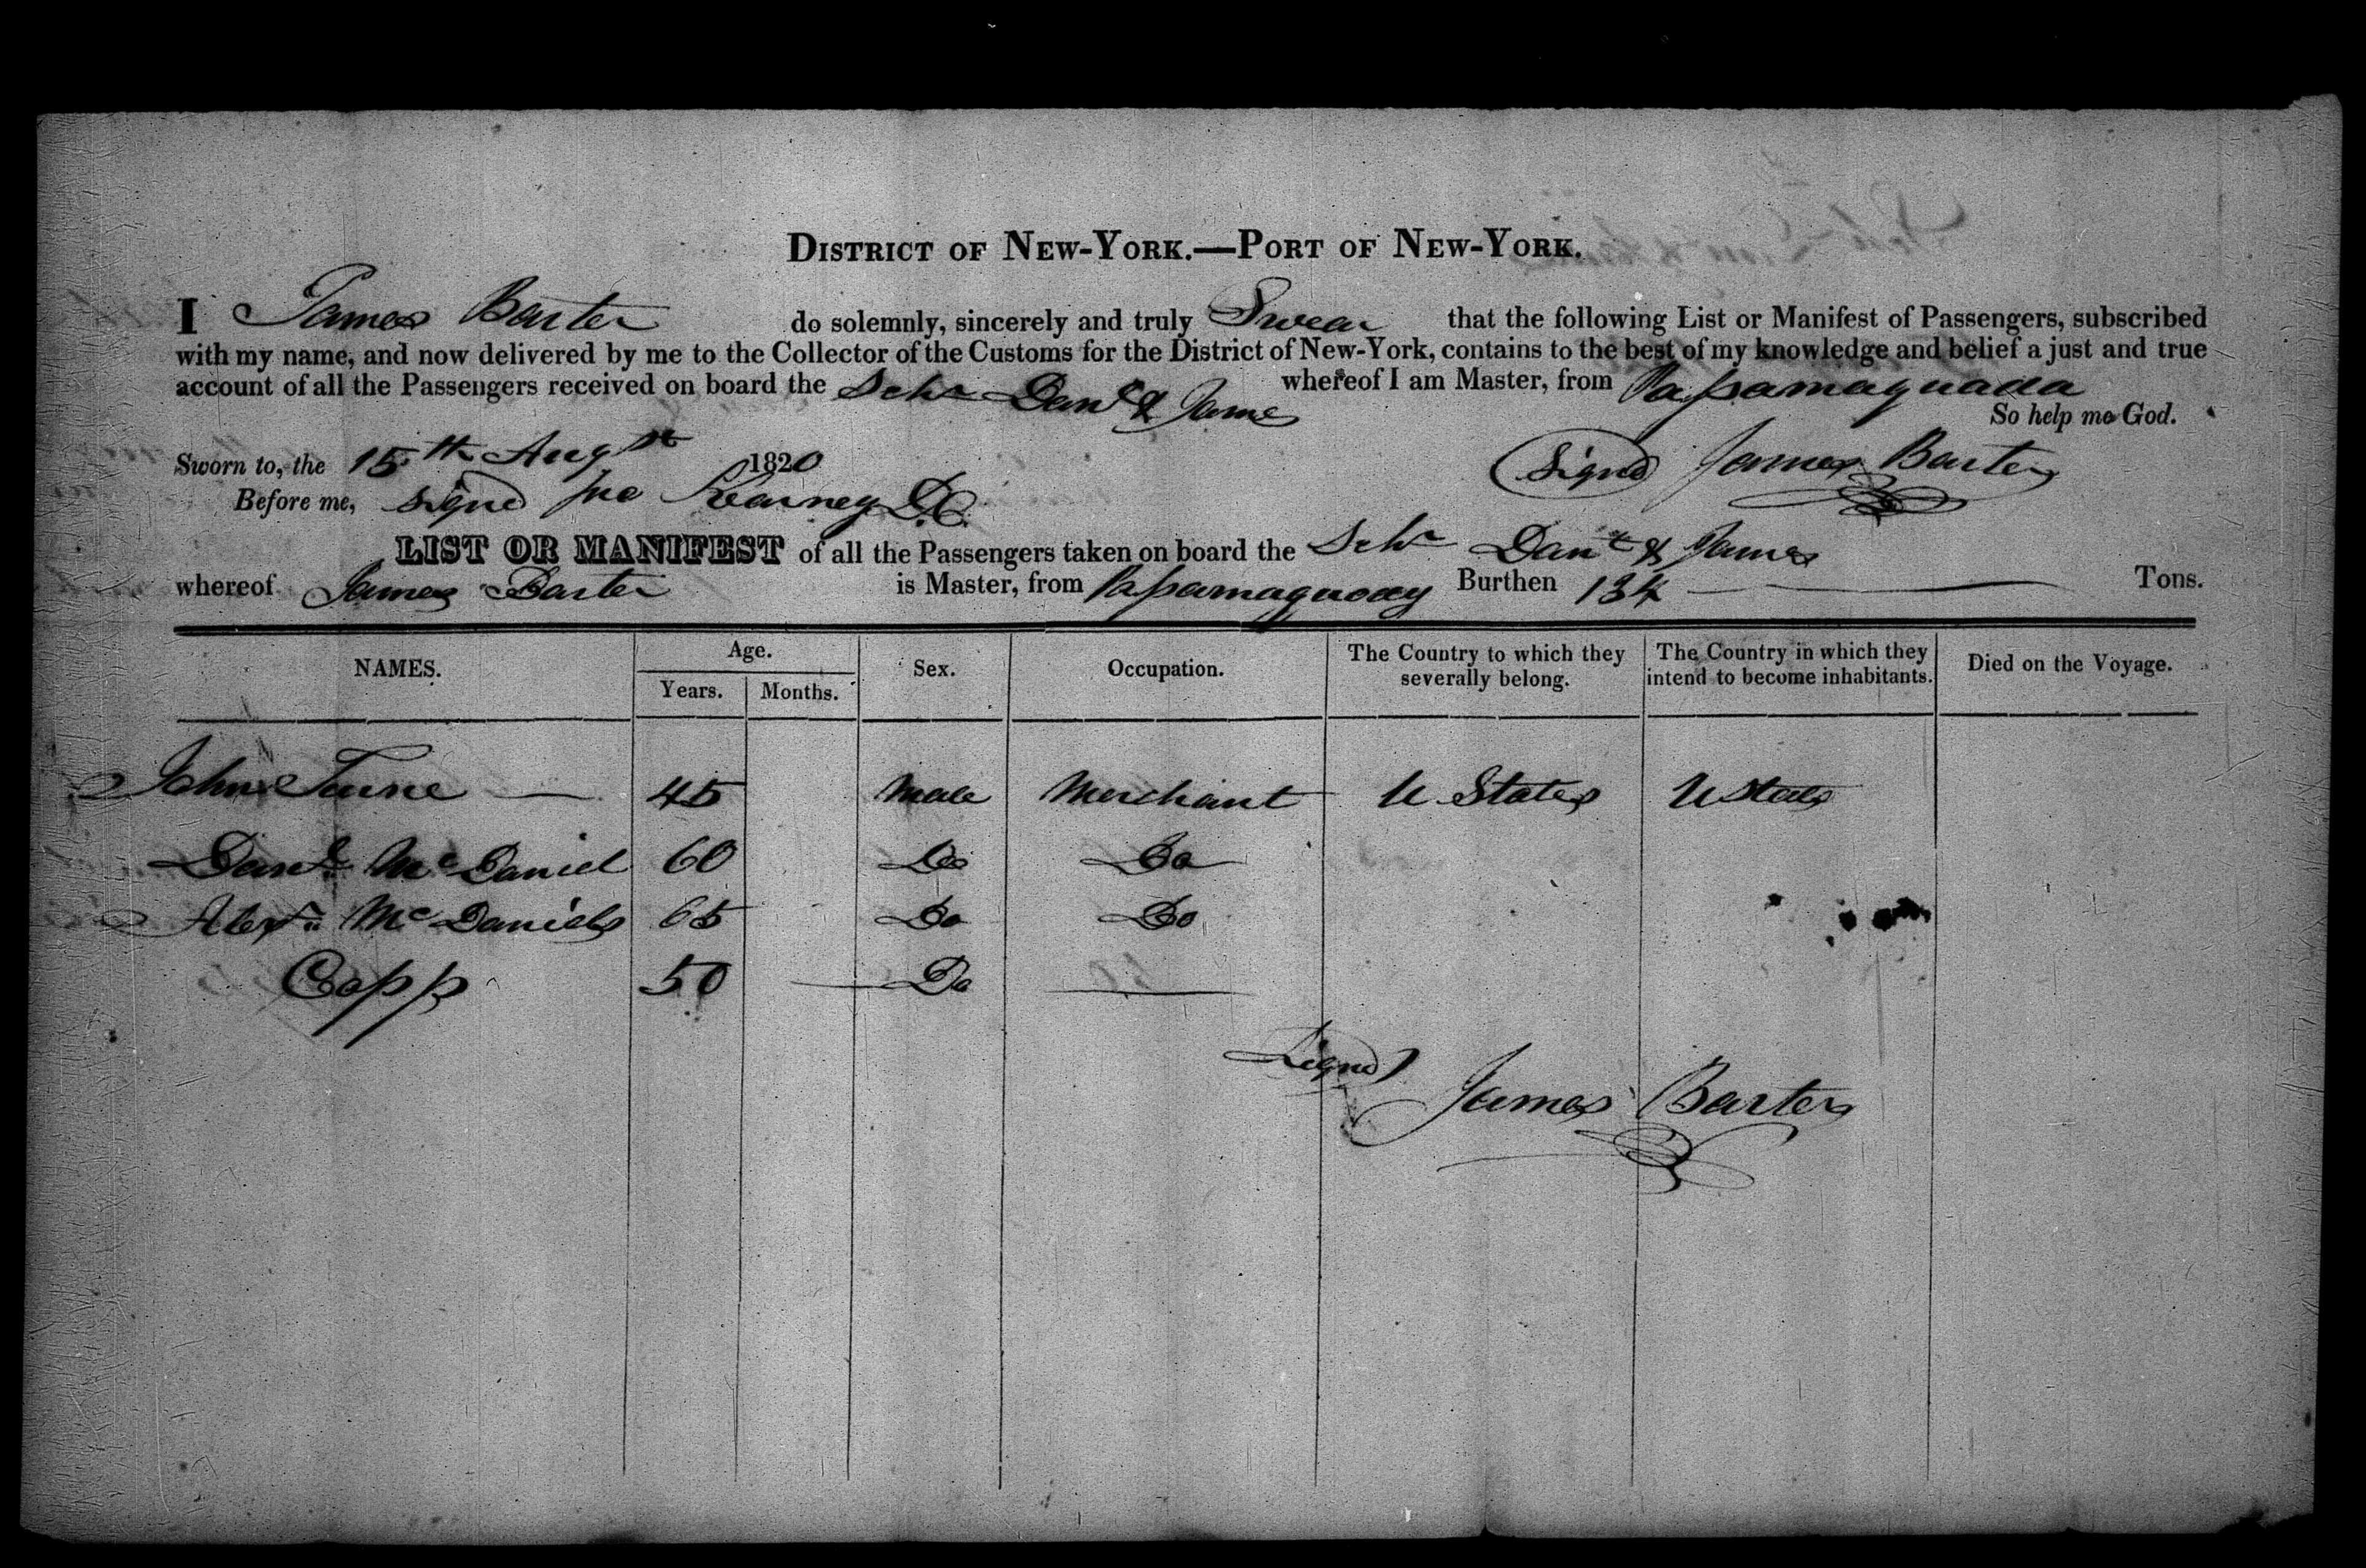 DISTRICT OF NEW-YORK.—PORT OF NEW-YORK.
I James Barter do solemnly, sincerely and truly Swear that the following List or Manifest of Passengers, subscribed
with my name, and now delivered by me to the Collector of the Customs for the District of New-York, contains to the best of my knowledge and belief a just and true
account of all the Passengers received on board the Schr Danl & James whereof I am Master, from Passamaquada
So help me God.
Sworn to, the 15th Augst 1820 (Signd) James Barter
Before me, signd Jno Kearney D.C.
LIST OR MANIFEST of all the Passengers taken on board the Schr Danl & James
whereof James Barter is Master, from Passamaquody Burthen 134 Tons.
NAMES. Age. Years. Months. Sex. Occupation. The Country to which they severally belong. The Country in which they intend to become inhabitants. Died on the Voyage.
John — 45 Male Merchant U States U States
Danl McDaniel 60 Do Do
Alexr McDaniels 65 Do Do
Copp 50 Do —
Signd)
James Barter